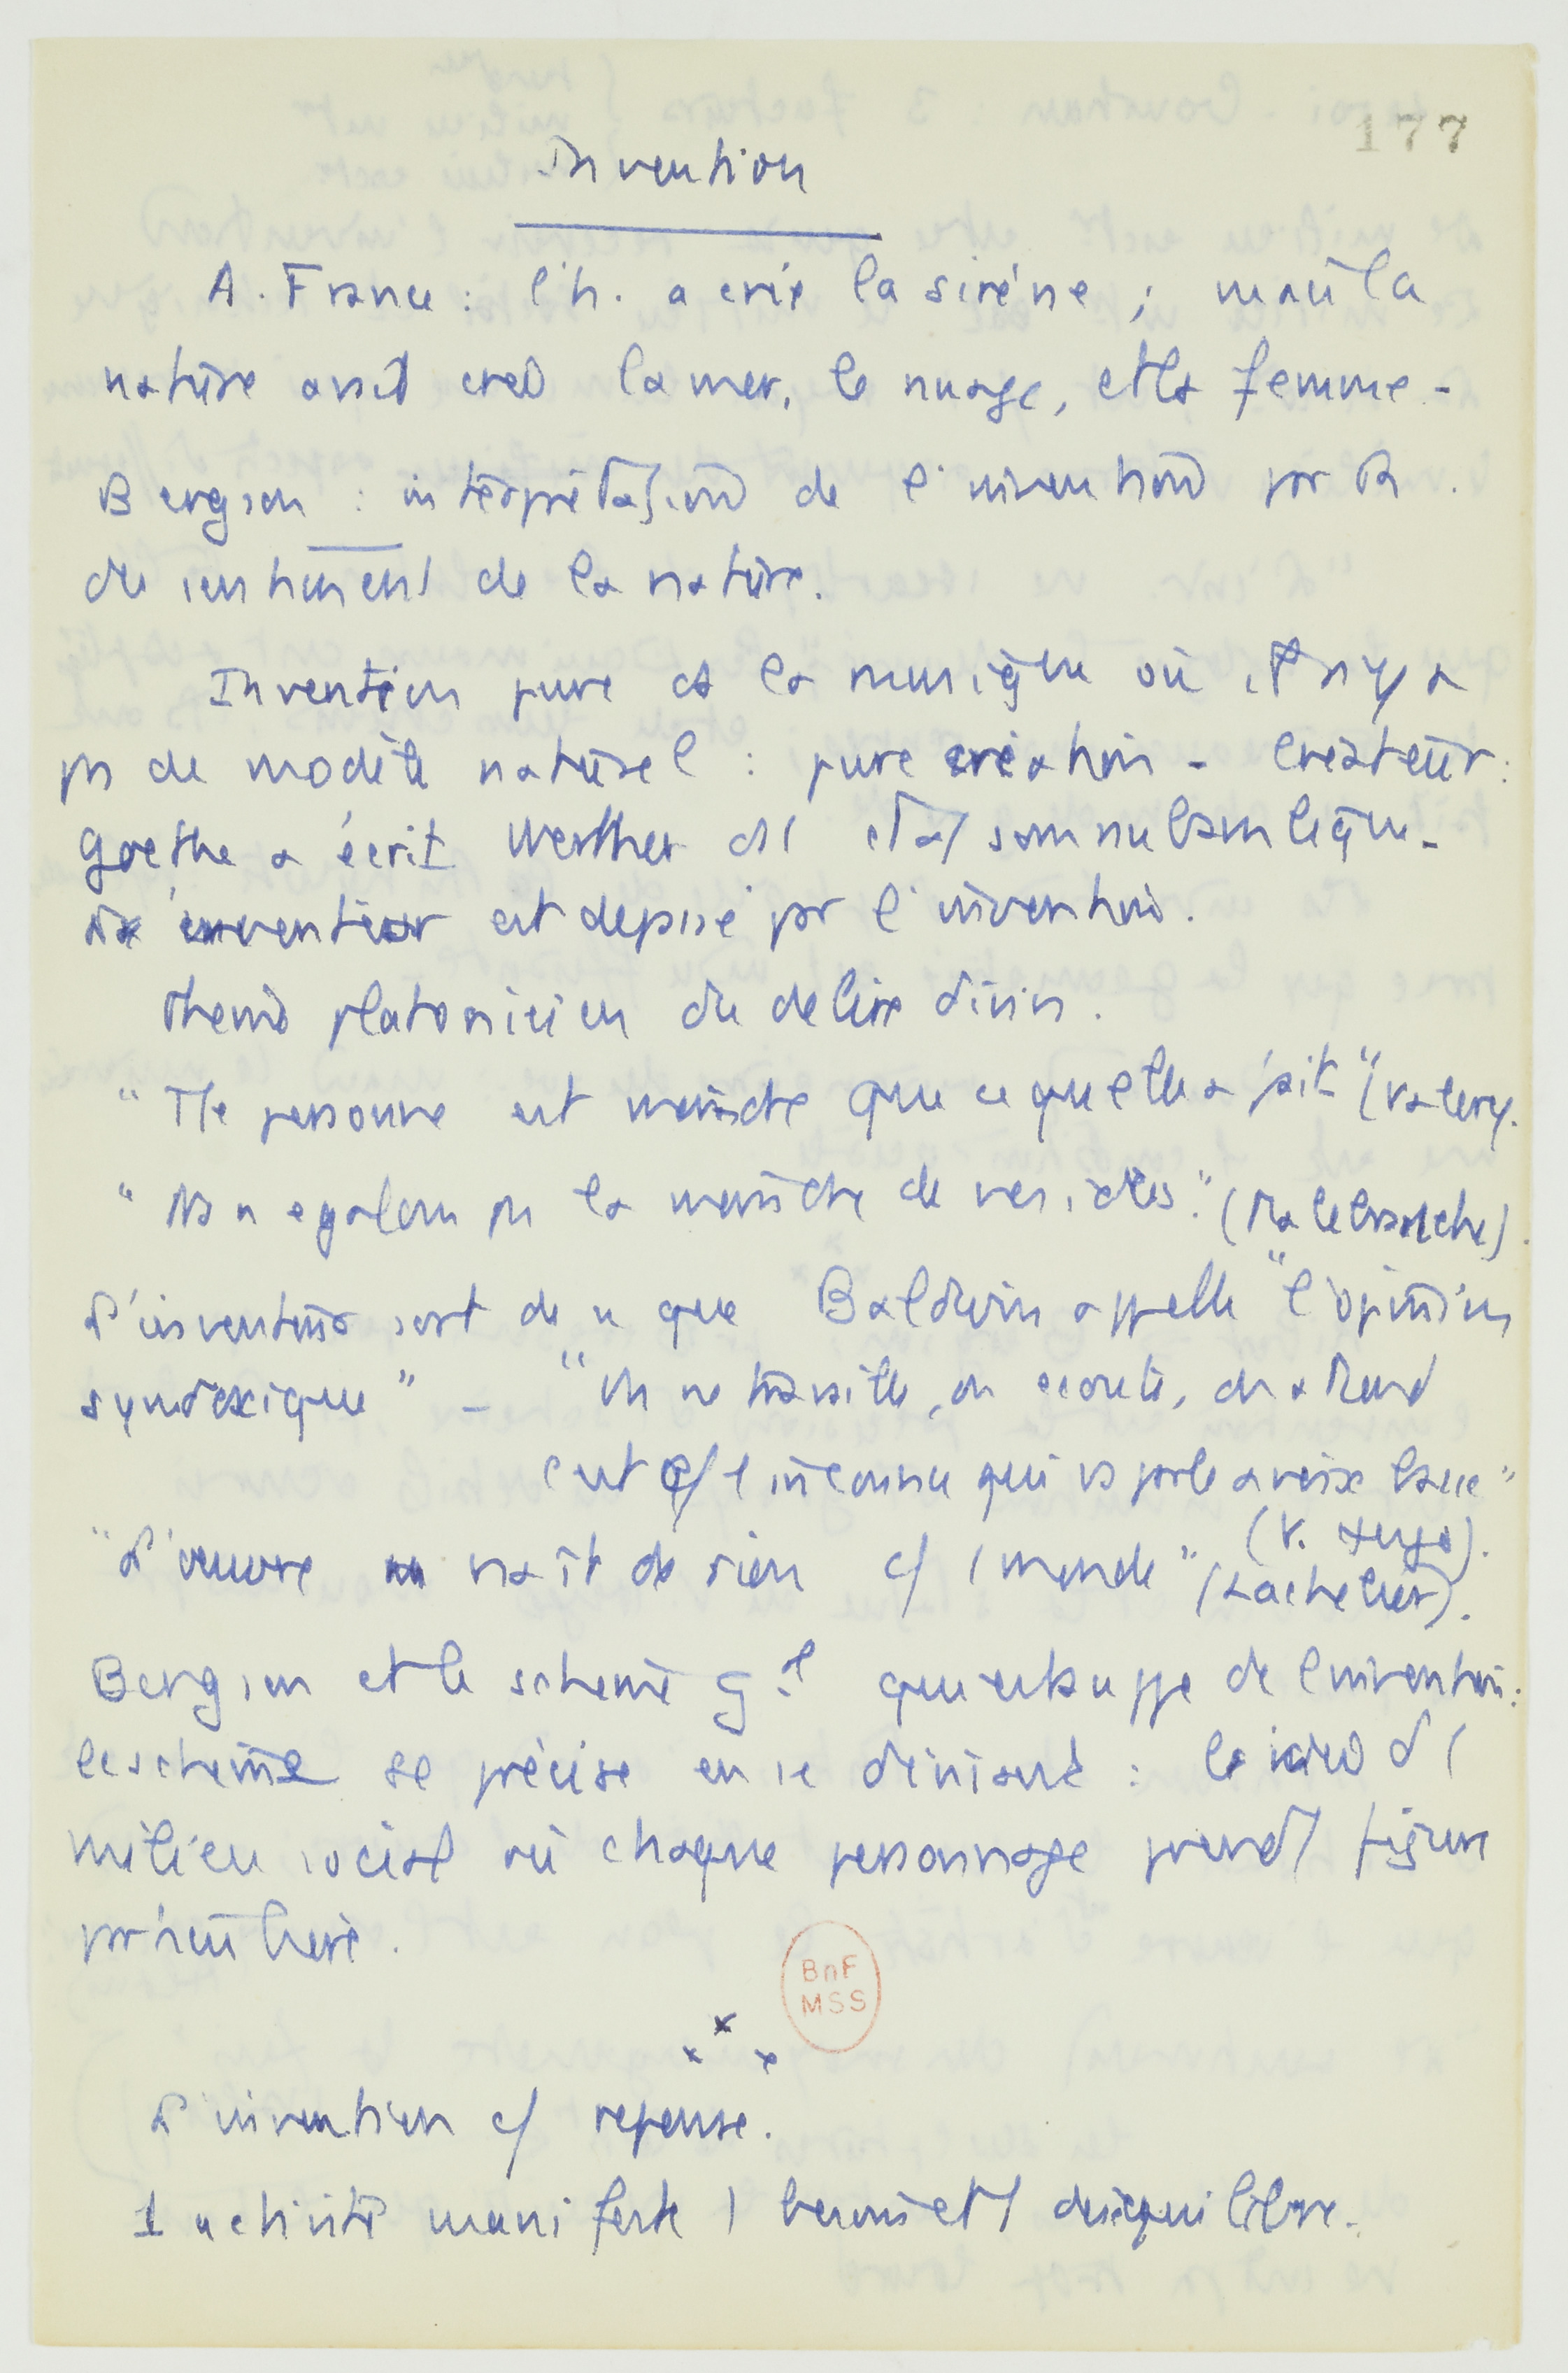 177
Invention
A. France : l'h. a créé la sirène ; mais la
nature avait créé la mer, le nuage, et la femme -
Bergson : interprétation de l'invention par
du sentiment de la nature.
Invention pure ds la musique où il n'y a
ps de modèle naturel : pure création - Créateur :
Goethe a écrit Werther ds 1 état somnambulique -
inventeur est dépassé par l'invention.
Thème platonicien du délire divin.
"Tte personne est moindre que ce qu'elle a fait" (Valéry.
"Ns n'égalons ps la moindre de nos idées." (Malebranche).
L'inventeur sort de ce que Baldwin appelle "l'opinion
syndoxique" - "On ne travaille, on écoute, on attend
c'est c/ 1 inconnu qui vs parle à voix basse"
(V. Hugo).
"L'œuvre naît de rien c/ 1 monde" (Lachelier).
Bergson et le schème gal que se développe de l'invention :
le schème se précise en se divisant : d 1
milieu social où chaque personnage prend figure
particulière.
x
x x
BnF
MSS
L'invention c/ réponse.
1 activité manifeste 1 besoin et 1 déséquilibre.